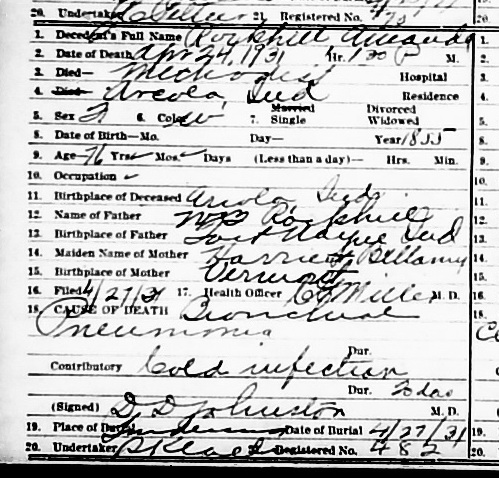 20. Undertaker 21. Registered No.
1. Decedent's Full Name Rockhill Amanda
2. Date of Death Apr 24, 1931 Hr. 1 30 P M.
3. Died— Methodist Hospital
4. Died— Arcola, Ind Residence
5. Sex F 6. Color W 7. Married Single Divorced Widowed
8. Date of Birth—Mo. Day— Year 1855
9. Age— 76 Yrs. Mos. Days (Less than a day)— Hrs. Min.
10. Occupation
11. Birthplace of Deceased Arcola, Ind
12. Name of Father Rockhill
13. Birthplace of Father Fort Wayne Ind
14. Maiden Name of Mother Harriet Bellamy
15. Birthplace of Mother Vermont
16. Filed 4/27/31 17. Health Officer Miller M. D.
18. CAUSE OF DEATH Bronchial
Pneumonia
Dur.
Contributory Cold infection
Dur.
(Signed) D D Johnston M. D.
19. Place of Burial Date of Burial 4/27/31
20. Undertaker 21. Registered No. 482